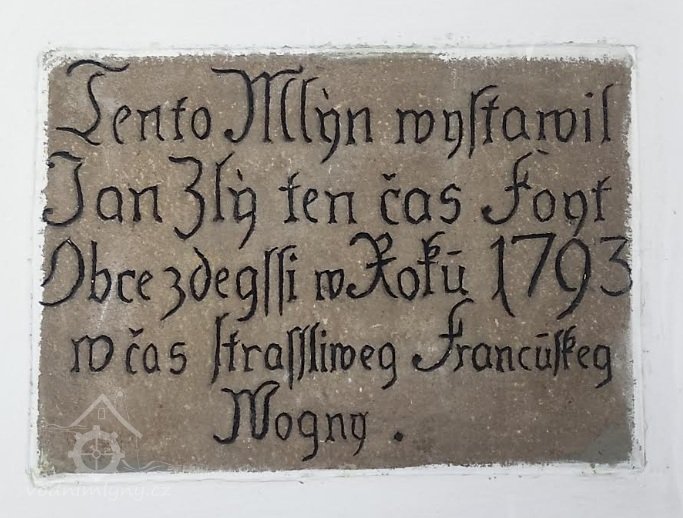 Tento Mlẏn wyſtawil
Jan Zlẏ ten čas Foyt
Obce zdegſſi w Rokū 1793
w čas ſtraſſliweg Francūſkeg
Wogny .
vodnimlyny.cz